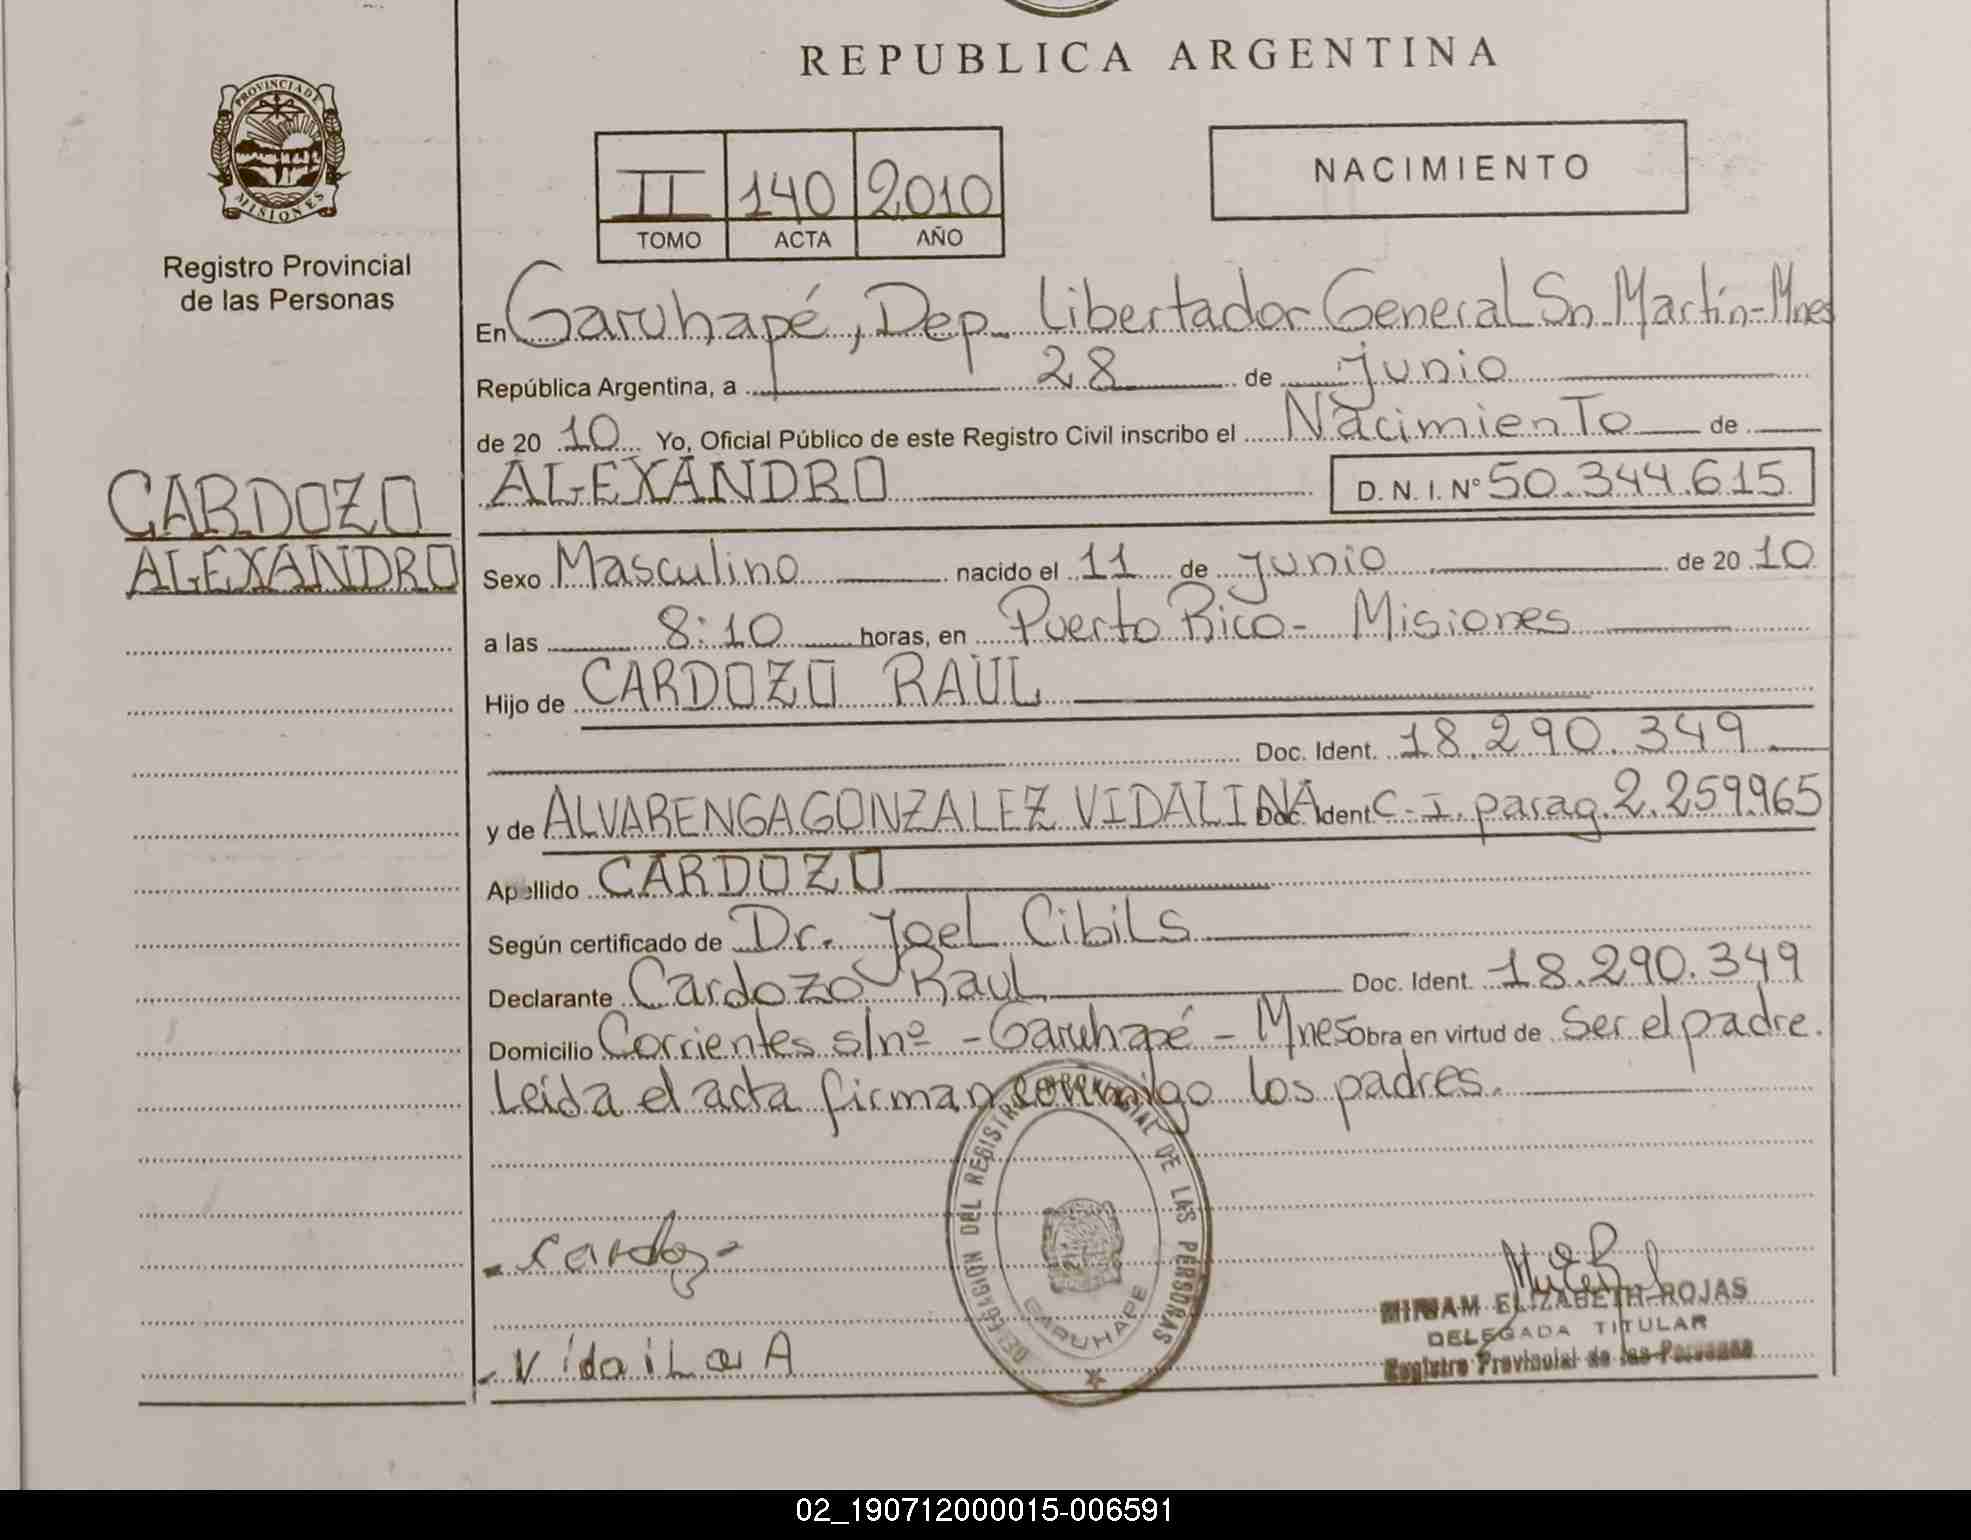 REPUBLICA ARGENTINA
PROVINCIA DE MISIONES
Registro Provincial
de las Personas
II 140 2010
TOMO ACTA AÑO
NACIMIENTO
En Garuhapé, Dep. Libertador General Sn Martín-Mnes
República Argentina, a 28 de junio
de 20 10 Yo, Oficial Público de este Registro Civil inscribo el Nacimiento de
ALEXANDRO D. N. I. N° 50.344.615
CARDOZO
ALEXANDRO
Sexo Masculino nacido el 11 de junio de 20 10
a las 8:10 horas, en Puerto Rico - Misiones
Hijo de CARDOZO RAUL
Doc. Ident. 18.290.349
y de ALVARENGA GONZALEZ VIDALINA Doc. Ident. C.I. parag. 2.259.965
Apellido CARDOZO
Según certificado de Dr. Joel Cibils
Declarante Cardozo Raul Doc. Ident. 18.290.349
Domicilio Corrientes s/nº - Garuhapé - Mnes Obra en virtud de ser el padre.
Leída el acta firman conmigo los padres.
DELEGACION DEL REGISTRO PROVINCIAL DE LAS PERSONAS
GARUHAPE
MIRIAM ELIZABETH ROJAS
DELEGADA TITULAR
Registro Provincial de las Personas
02_190712000015-006591